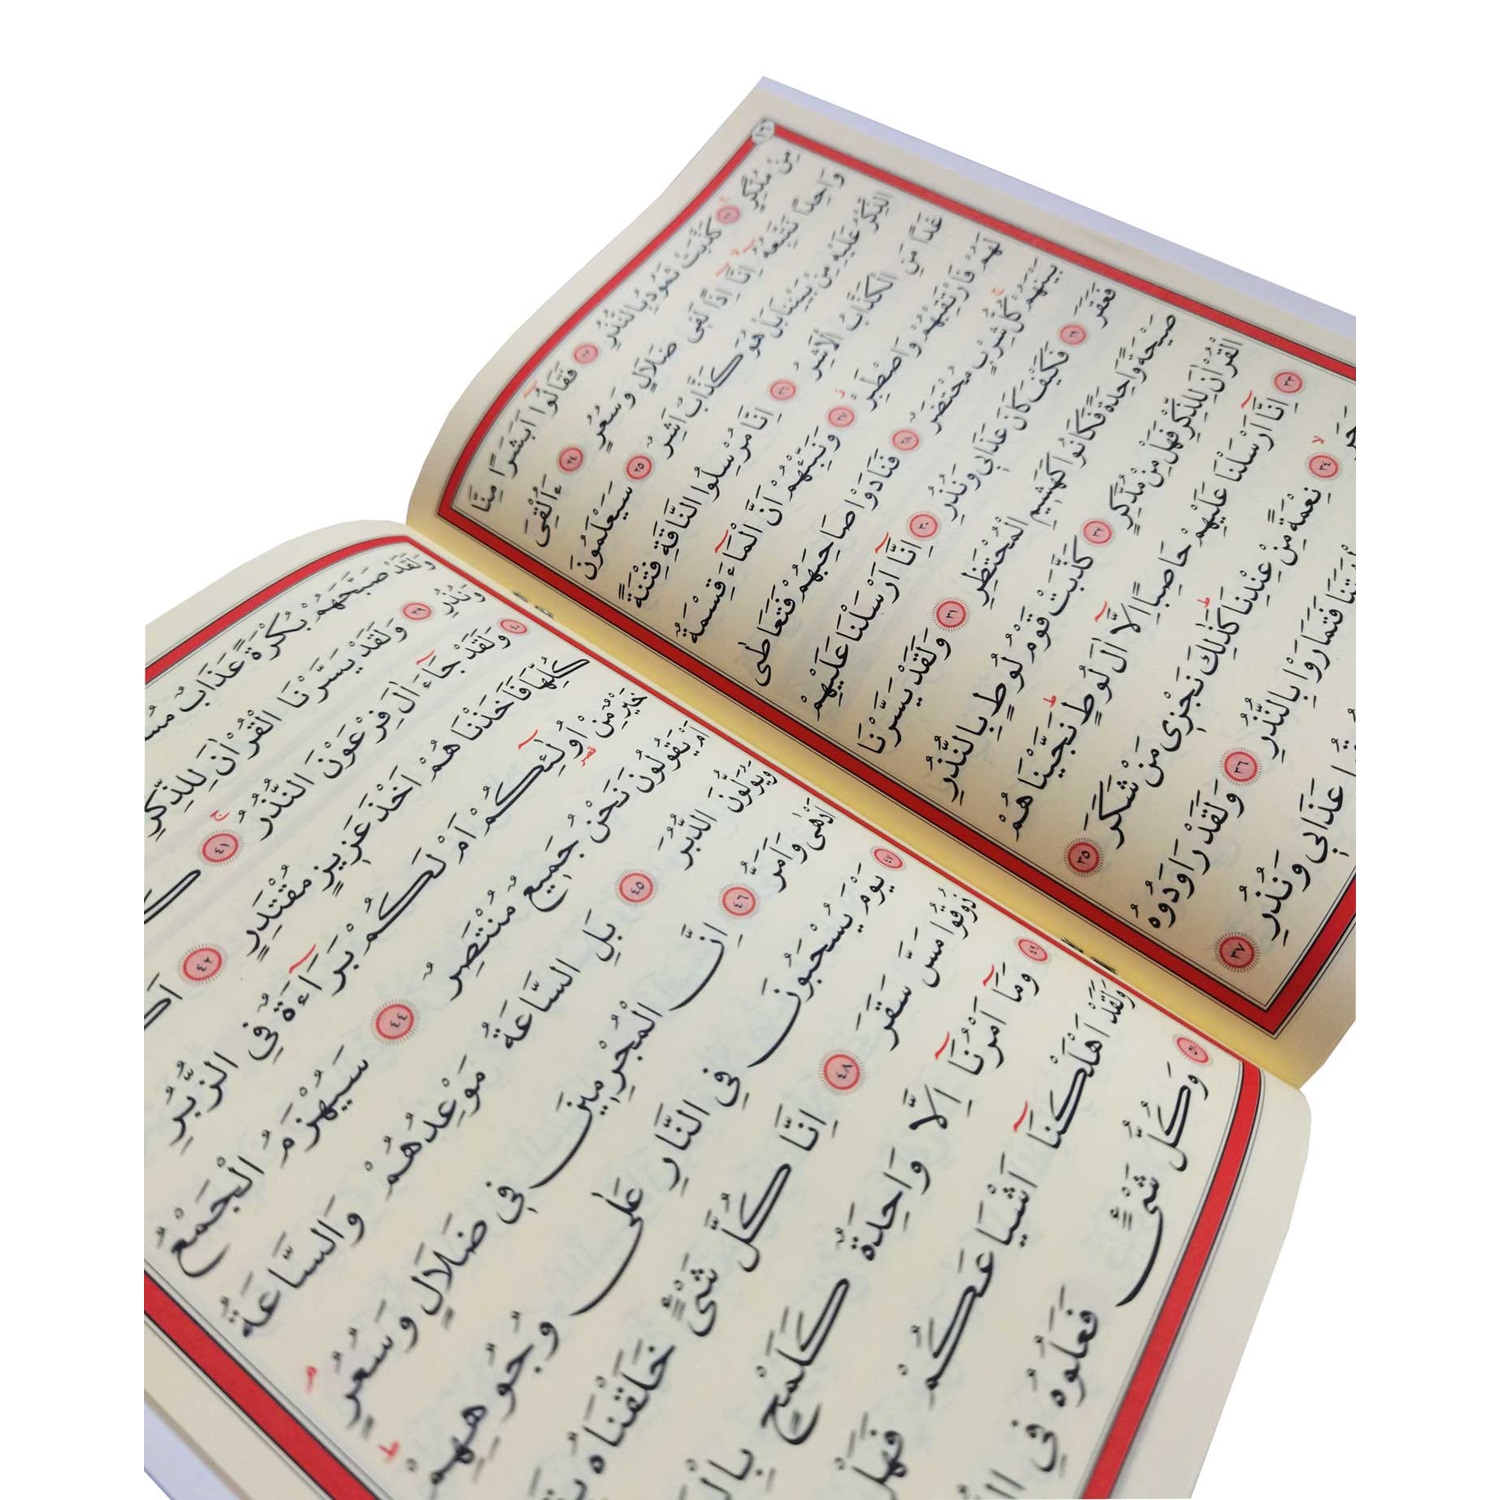 مِنْ مُدَّكِرٍ ٢٢ كَذَّبَتْ ثَمُودُ بِالنُّذُرِ ٢٣ فَقَالُٓوا اَبَشَرًا مِنَّا
وَاحِدًا نَتَّبِعُهُٓ اِنَّٓا اِذًا لَفِى ضَلَالٍ وَسُعُرٍ ٢٤ ءَاُلْقِىَ
الذِّكْرُ عَلَيْهِ مِنْ بَيْنِنَا بَلْ هُوَ كَذَّابٌ اَشِرٌ ٢٥ سَيَعْلَمُونَ
غَدًا مَنِ الْكَذَّابُ الْاَشِرُ ٢٦ اِنَّا مُرْسِلُوا النَّاقَةِ فِتْنَةً
لَهُمْ فَارْتَقِبْهُمْ وَاصْطَبِرْ ٢٧ وَنَبِّئْهُمْ اَنَّ الْمَٓاءَ قِسْمَةٌ
بَيْنَهُمْ كُلُّ شِرْبٍ مُحْتَضَرٌ ٢٨ فَنَادَوْا صَاحِبَهُمْ فَتَعَاطٰى
فَعَقَرَ ٢٩ فَكَيْفَ كَانَ عَذَابِى وَنُذُرِ ٣٠ اِنَّٓا اَرْسَلْنَا عَلَيْهِمْ
صَيْحَةً وَاحِدَةً فَكَانُوا كَهَشِيمِ الْمُحْتَظِرِ ٣١ وَلَقَدْ يَسَّرْنَا
الْقُرْاٰنَ لِلذِّكْرِ فَهَلْ مِنْ مُدَّكِرٍ ٣٢ كَذَّبَتْ قَوْمُ لُوطٍ بِالنُّذُرِ
٣٣ اِنَّٓا اَرْسَلْنَا عَلَيْهِمْ حَاصِبًا اِلَّٓا اٰلَ لُوطٍ نَجَّيْنَاهُمْ
٣٤ نِعْمَةً مِنْ عِنْدِنَا كَذٰلِكَ نَجْزِى مَنْ شَكَرَ ٣٥
فَتَمَارَوْا بِالنُّذُرِ ٣٦ وَلَقَدْ رَاوَدُوهُ
عَذَابِى وَنُذُرِ ٣٧
وَلَقَدْ صَبَّحَهُمْ بُكْرَةً عَذَابٌ
وَنُذُرِ ٣٩ وَلَقَدْ يَسَّرْنَا الْقُرْاٰنَ لِلذِّكْرِ
٤٠ وَلَقَدْ جَٓاءَ اٰلَ فِرْعَوْنَ النُّذُرُ ٤١
كُلِّهَا فَاَخَذْنَاهُمْ اَخْذَ عَزِيزٍ مُقْتَدِرٍ ٤٢
خَيْرٌ مِنْ اُولٰٓئِكُمْ اَمْ لَكُمْ بَرَٓاءَةٌ فِى الزُّبُرِ
اَمْ يَقُولُونَ نَحْنُ جَمِيعٌ مُنْتَصِرٌ ٤٤ سَيُهْزَمُ الْجَمْعُ
وَيُوَلُّونَ الدُّبُرَ ٤٥ بَلِ السَّاعَةُ مَوْعِدُهُمْ وَالسَّاعَةُ
اَدْهٰى وَاَمَرُّ ٤٦ اِنَّ الْمُجْرِمِينَ فِى ضَلَالٍ وَسُعُرٍ
٤٧ يَوْمَ يُسْحَبُونَ فِى النَّارِ عَلٰى وُجُوهِهِمْ
ذُوقُوا مَسَّ سَقَرَ ٤٨ اِنَّا كُلَّ شَىْءٍ خَلَقْنَاهُ
٤٩ وَمَٓا اَمْرُنَٓا اِلَّا وَاحِدَةٌ كَلَمْحٍ
وَلَقَدْ اَهْلَكْنَٓا اَشْيَاعَكُمْ فَهَلْ
٥١ وَكُلُّ شَىْءٍ فَعَلُوهُ فِى